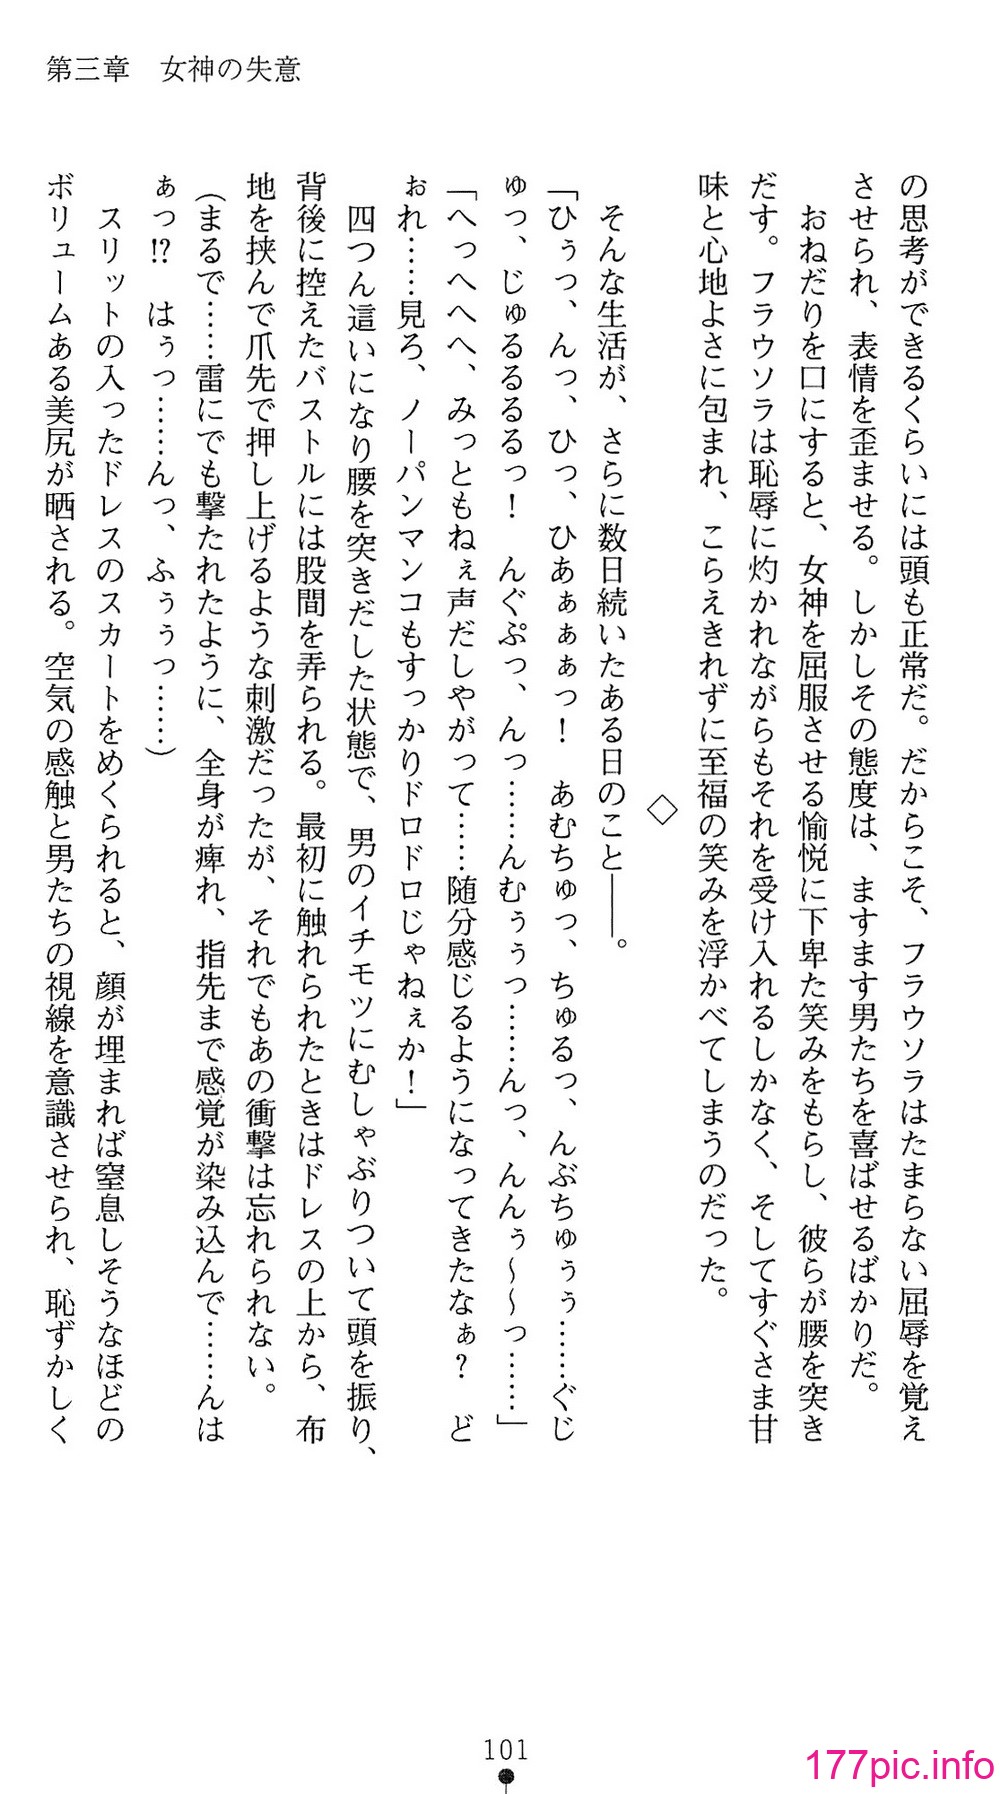 第三章　女神の失意
の思考ができるくらいには頭も正常だ。だからこそ、フラウソラはたまらない屈辱を覚え
させられ、表情を歪ませる。しかしその態度は、ますます男たちを喜ばせるばかりだ。
　おねだりを口にすると、女神を屈服させる愉悦に下卑た笑みをもらし、彼らが腰を突き
だす。フラウソラは恥辱に灼かれながらもそれを受け入れるしかなく、そしてすぐさま甘
味と心地よさに包まれ、こらえきれずに至福の笑みを浮かべてしまうのだった。
◇
　そんな生活が、さらに数日続いたある日のこと――。
「ひぅっ、んっ、ひっ、ひあぁぁぁっ！　あむちゅっ、ちゅるっ、んぶちゅぅぅ……ぐじ
ゅっ、じゅるるるるっ！　んぐぷっ、んっ……んむぅぅっ……んっ、んんぅ～～っ……」
「へっへへへ、みっともねぇ声だしやがって……随分感じるようになってきたなぁ？　ど
ぉれ……見ろ、ノーパンマンコもすっかりドロドロじゃねぇか！」
　四つん這いになり腰を突きだした状態で、男のイチモツにむしゃぶりついて頭を振り、
背後に控えたバストルには股間を弄られる。最初に触れられたときはドレスの上から、布
地を挟んで爪先で押し上げるような刺激だったが、それでもあの衝撃は忘れられない。
（まるで……雷にでも撃たれたように、全身が痺れ、指先まで感覚が染み込んで……んは
ぁっ!?　はぅっ……んっ、ふぅぅっ……）
　スリットの入ったドレスのスカートをめくられると、顔が埋まれば窒息しそうなほどの
ボリュームある美尻が晒される。空気の感触と男たちの視線を意識させられ、恥ずかしく
101
177pic.info